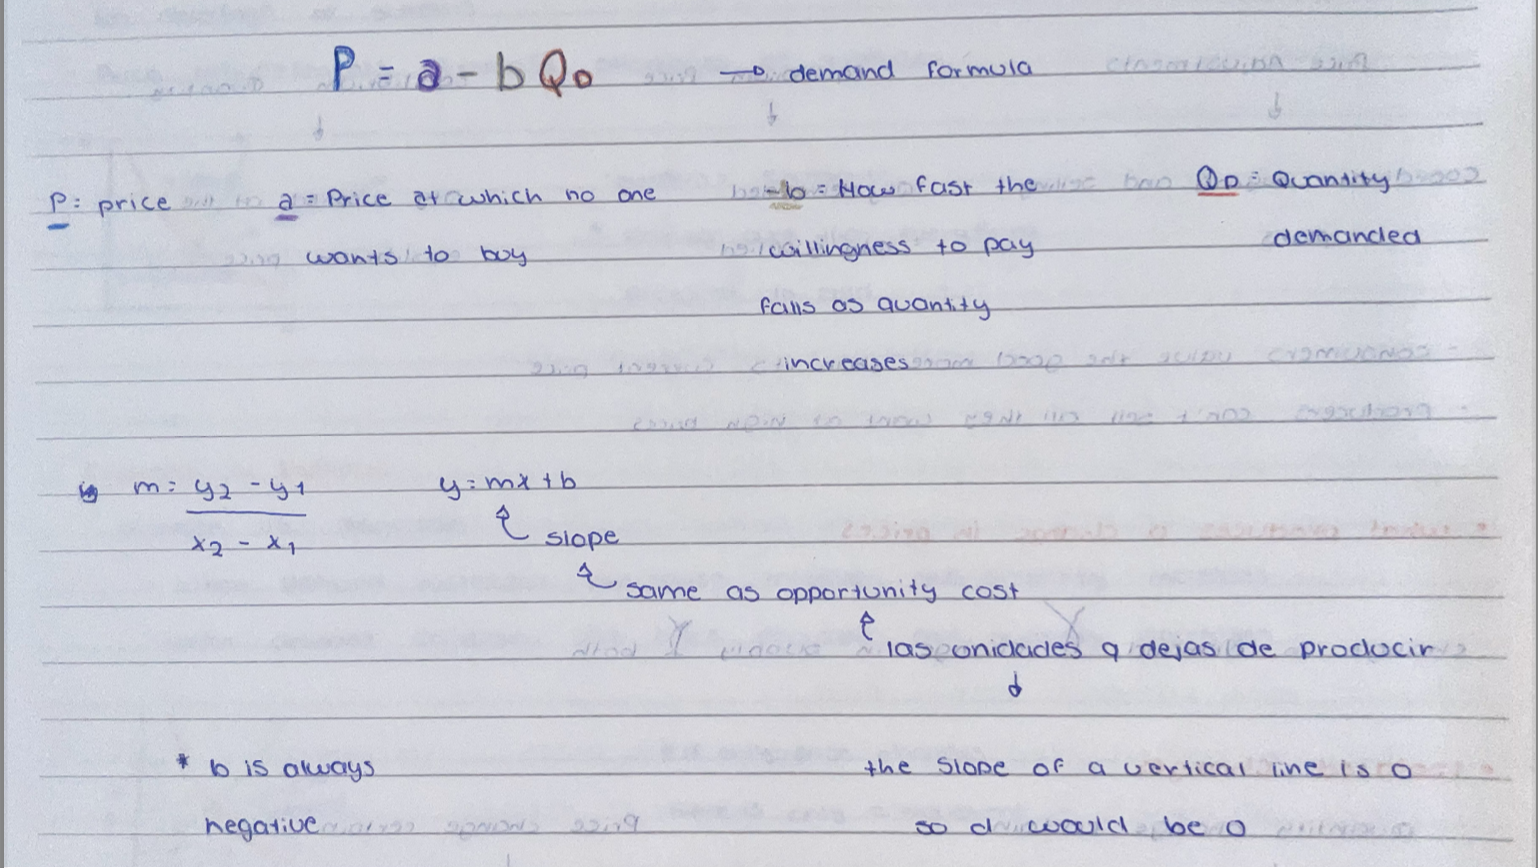 P = a - bQD → demand formula
P: price a = Price at which no one -b = How fast the QD = Quantity
wants to buy willingness to pay demanded
falls as quantity
increases
m = y2 - y1 y = mx + b
x2 - x1 slope
same as opportunity cost
las unidades q dejas de producir
* b is always the slope of a vertical line is 0
negative so d would be 0